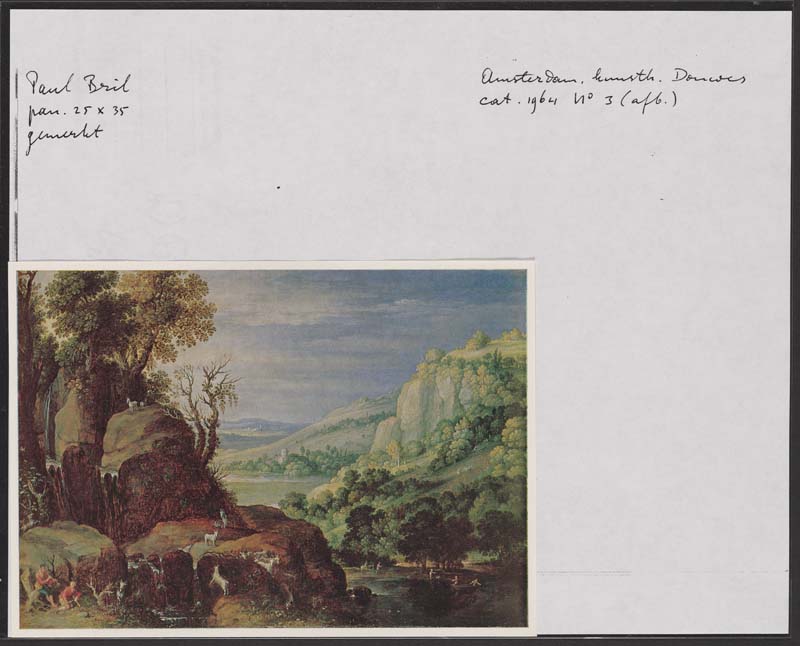 Paul Bril
pan. 25 x 35
gemerkt
Amsterdam, kunsth. Douwes
cat. 1964 No 3 (afb.)